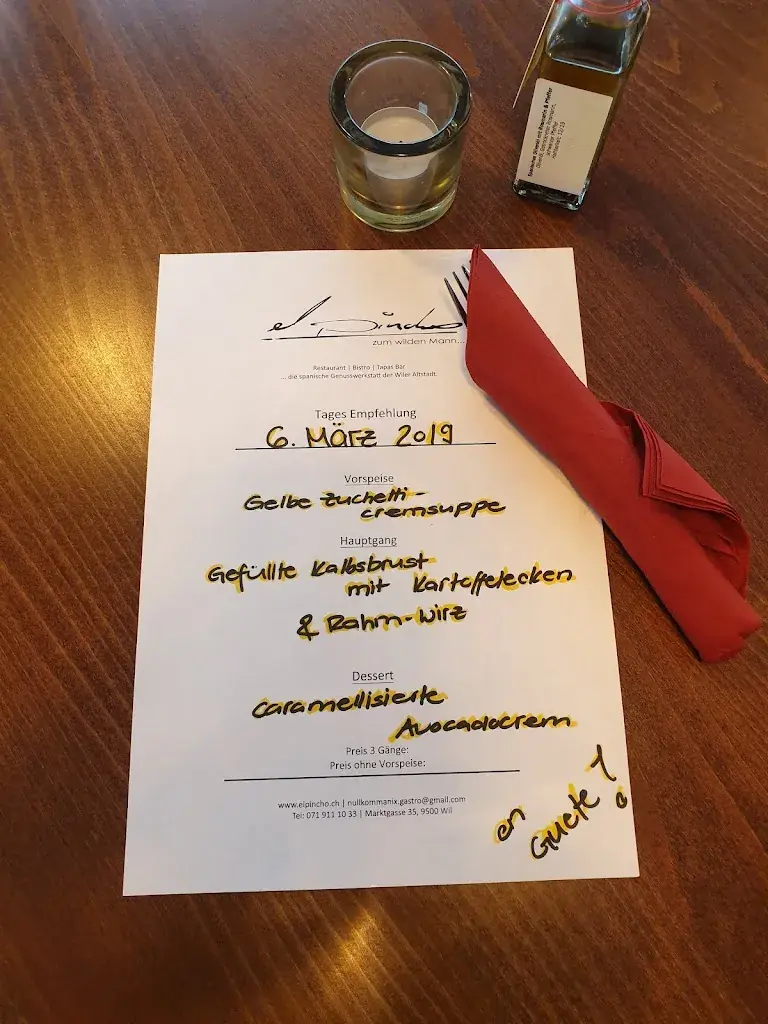 el pincho
zum wilden Mann...
Restaurant | Bistro | Tapas Bar
... die spanische Genusswerkstatt der Wiler Altstadt.
Tages Empfehlung
6. März 2019
Vorspeise
Gelbe Zuchetti-
cremsuppe
Hauptgang
Gefüllte Kalbsbrust
mit Kartoffelecken
& Rahm-Wirz
Dessert
Caramellisierte
Avocadocrem
Preis 3 Gänge:
Preis ohne Vorspeise:
www.elpincho.ch | nullkommanix.gastro@gmail.com
Tel: 071 911 10 33 | Marktgasse 35, 9500 Wil
en
Guete!